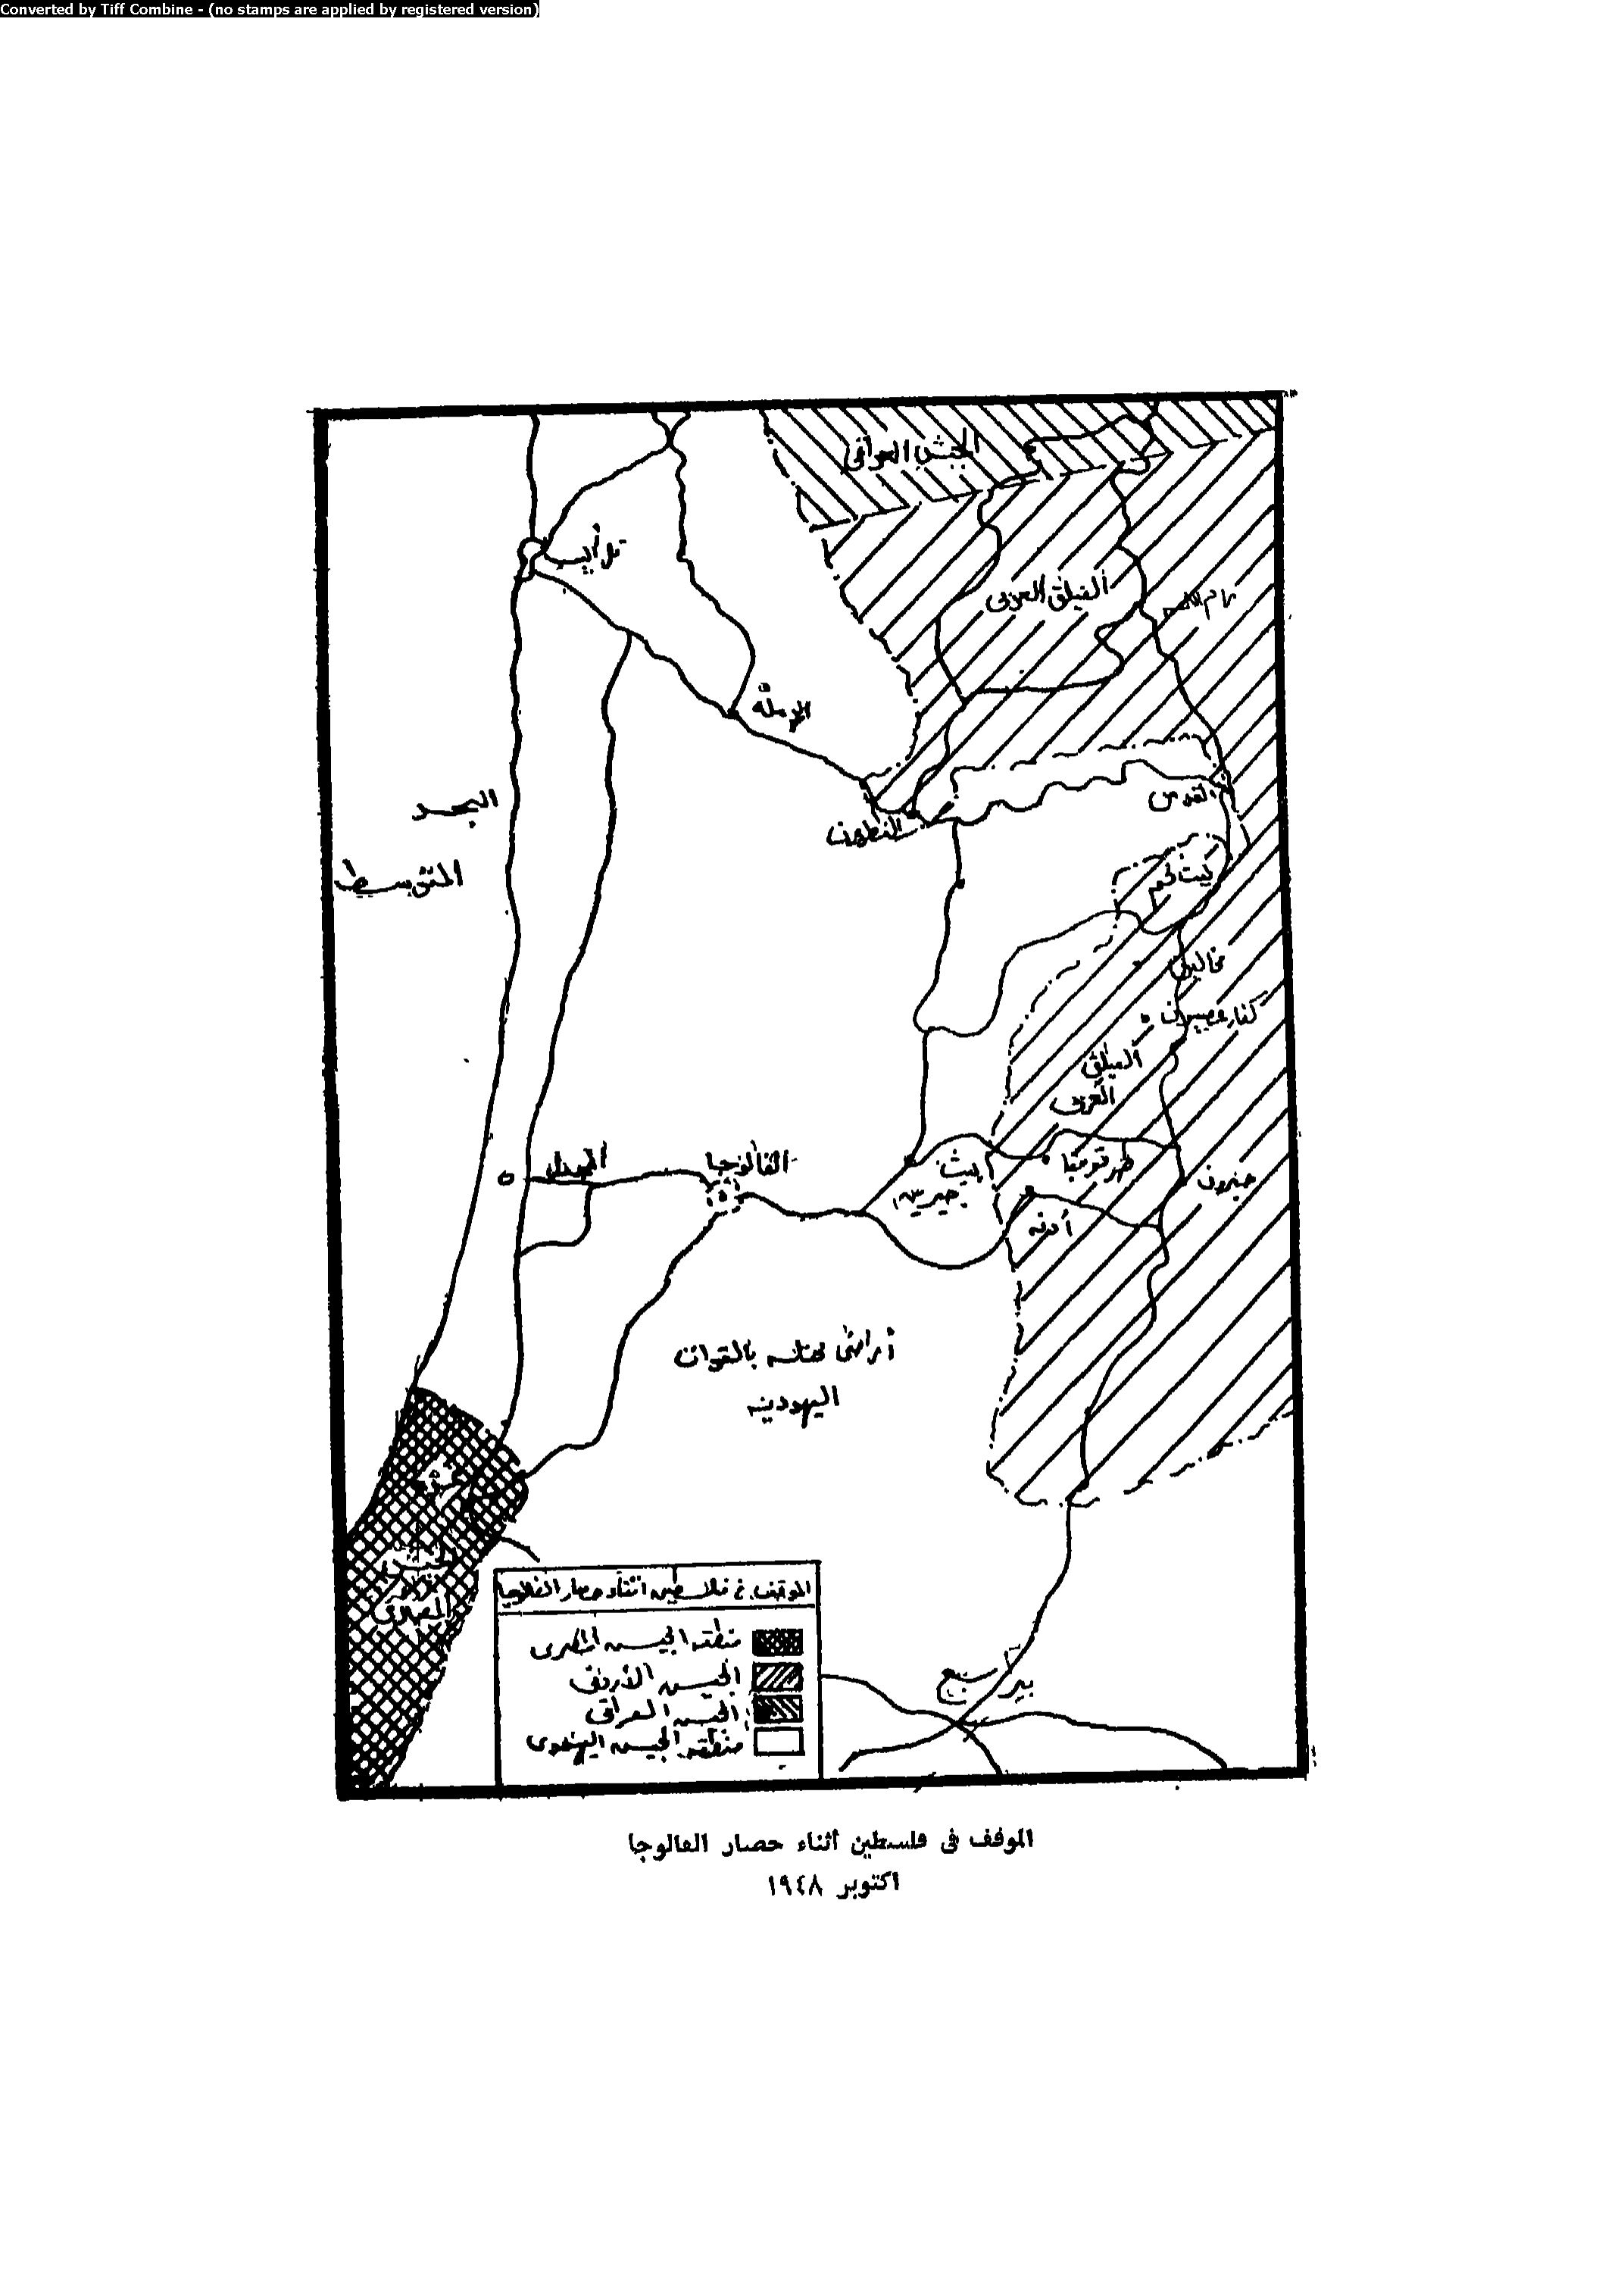 Converted by Tiff Combine - (no stamps are applied by registered version)
الجيش العراقى
تل أبيب
الفيلق العربى
رام الله
الرمله
البحر
المتوسط
القدس
اللطرون
بيت لحم
الفيلق
العربى
المجدل
الفالوجا
بيت
جبرين
ترقوميا
حبرون
أذنه
أراضى محتله بالقوات
اليهوديه
غزه
الجيش
المصرى
الموقف فى فلسطين اثناء حصار الفالوجا
منطقة الجيش المصرى
الجيش الأردنى
الجيش العراقى
منطقة الجيش اليهودى
بير سبع
الموقف فى فلسطين أثناء حصار الفالوجا
اكتوبر ١٩٤٨